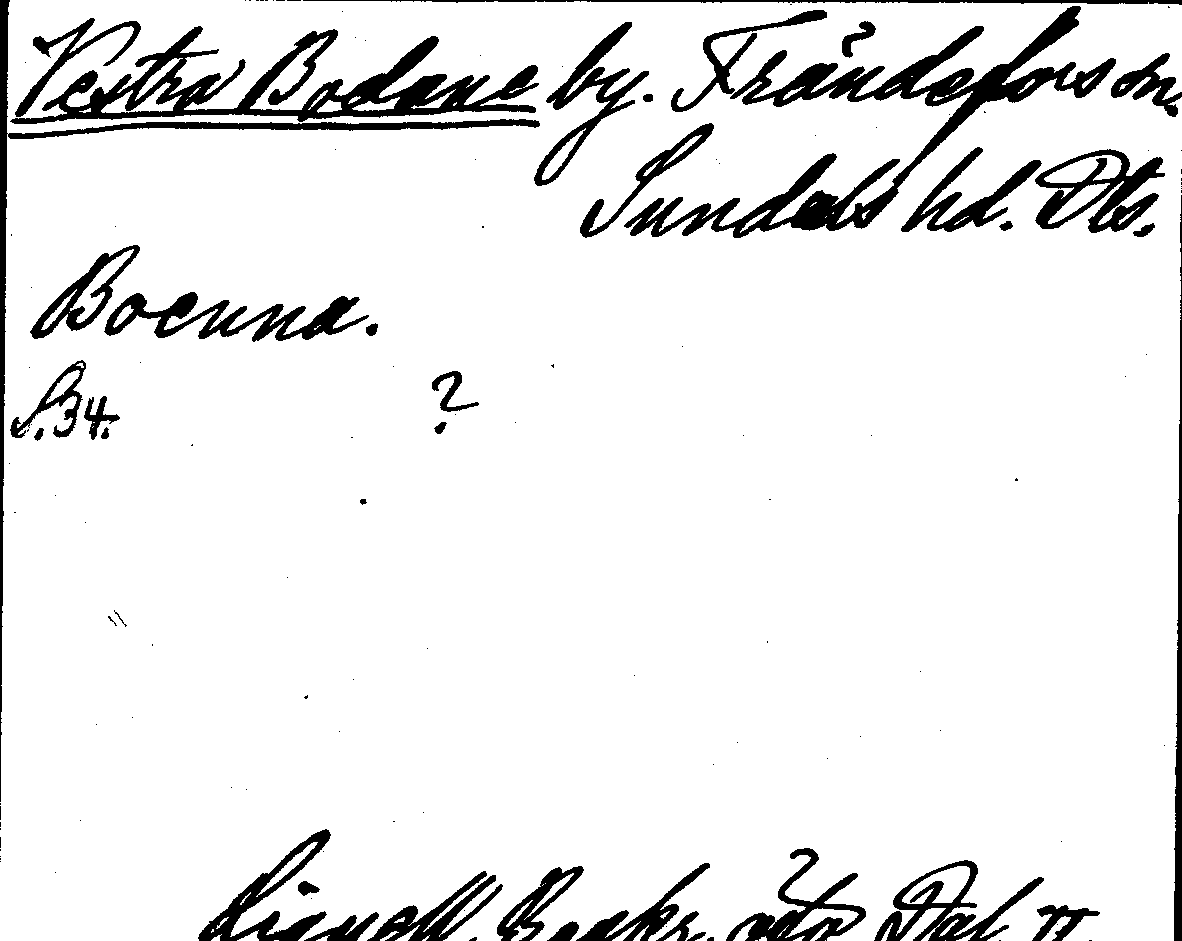 Vestra Bodane by. Frändefors sn.
Sundals hd. Dls.
Bocunna.
S. 34. ?
Lignell, Beskr. öfv. Dal II.